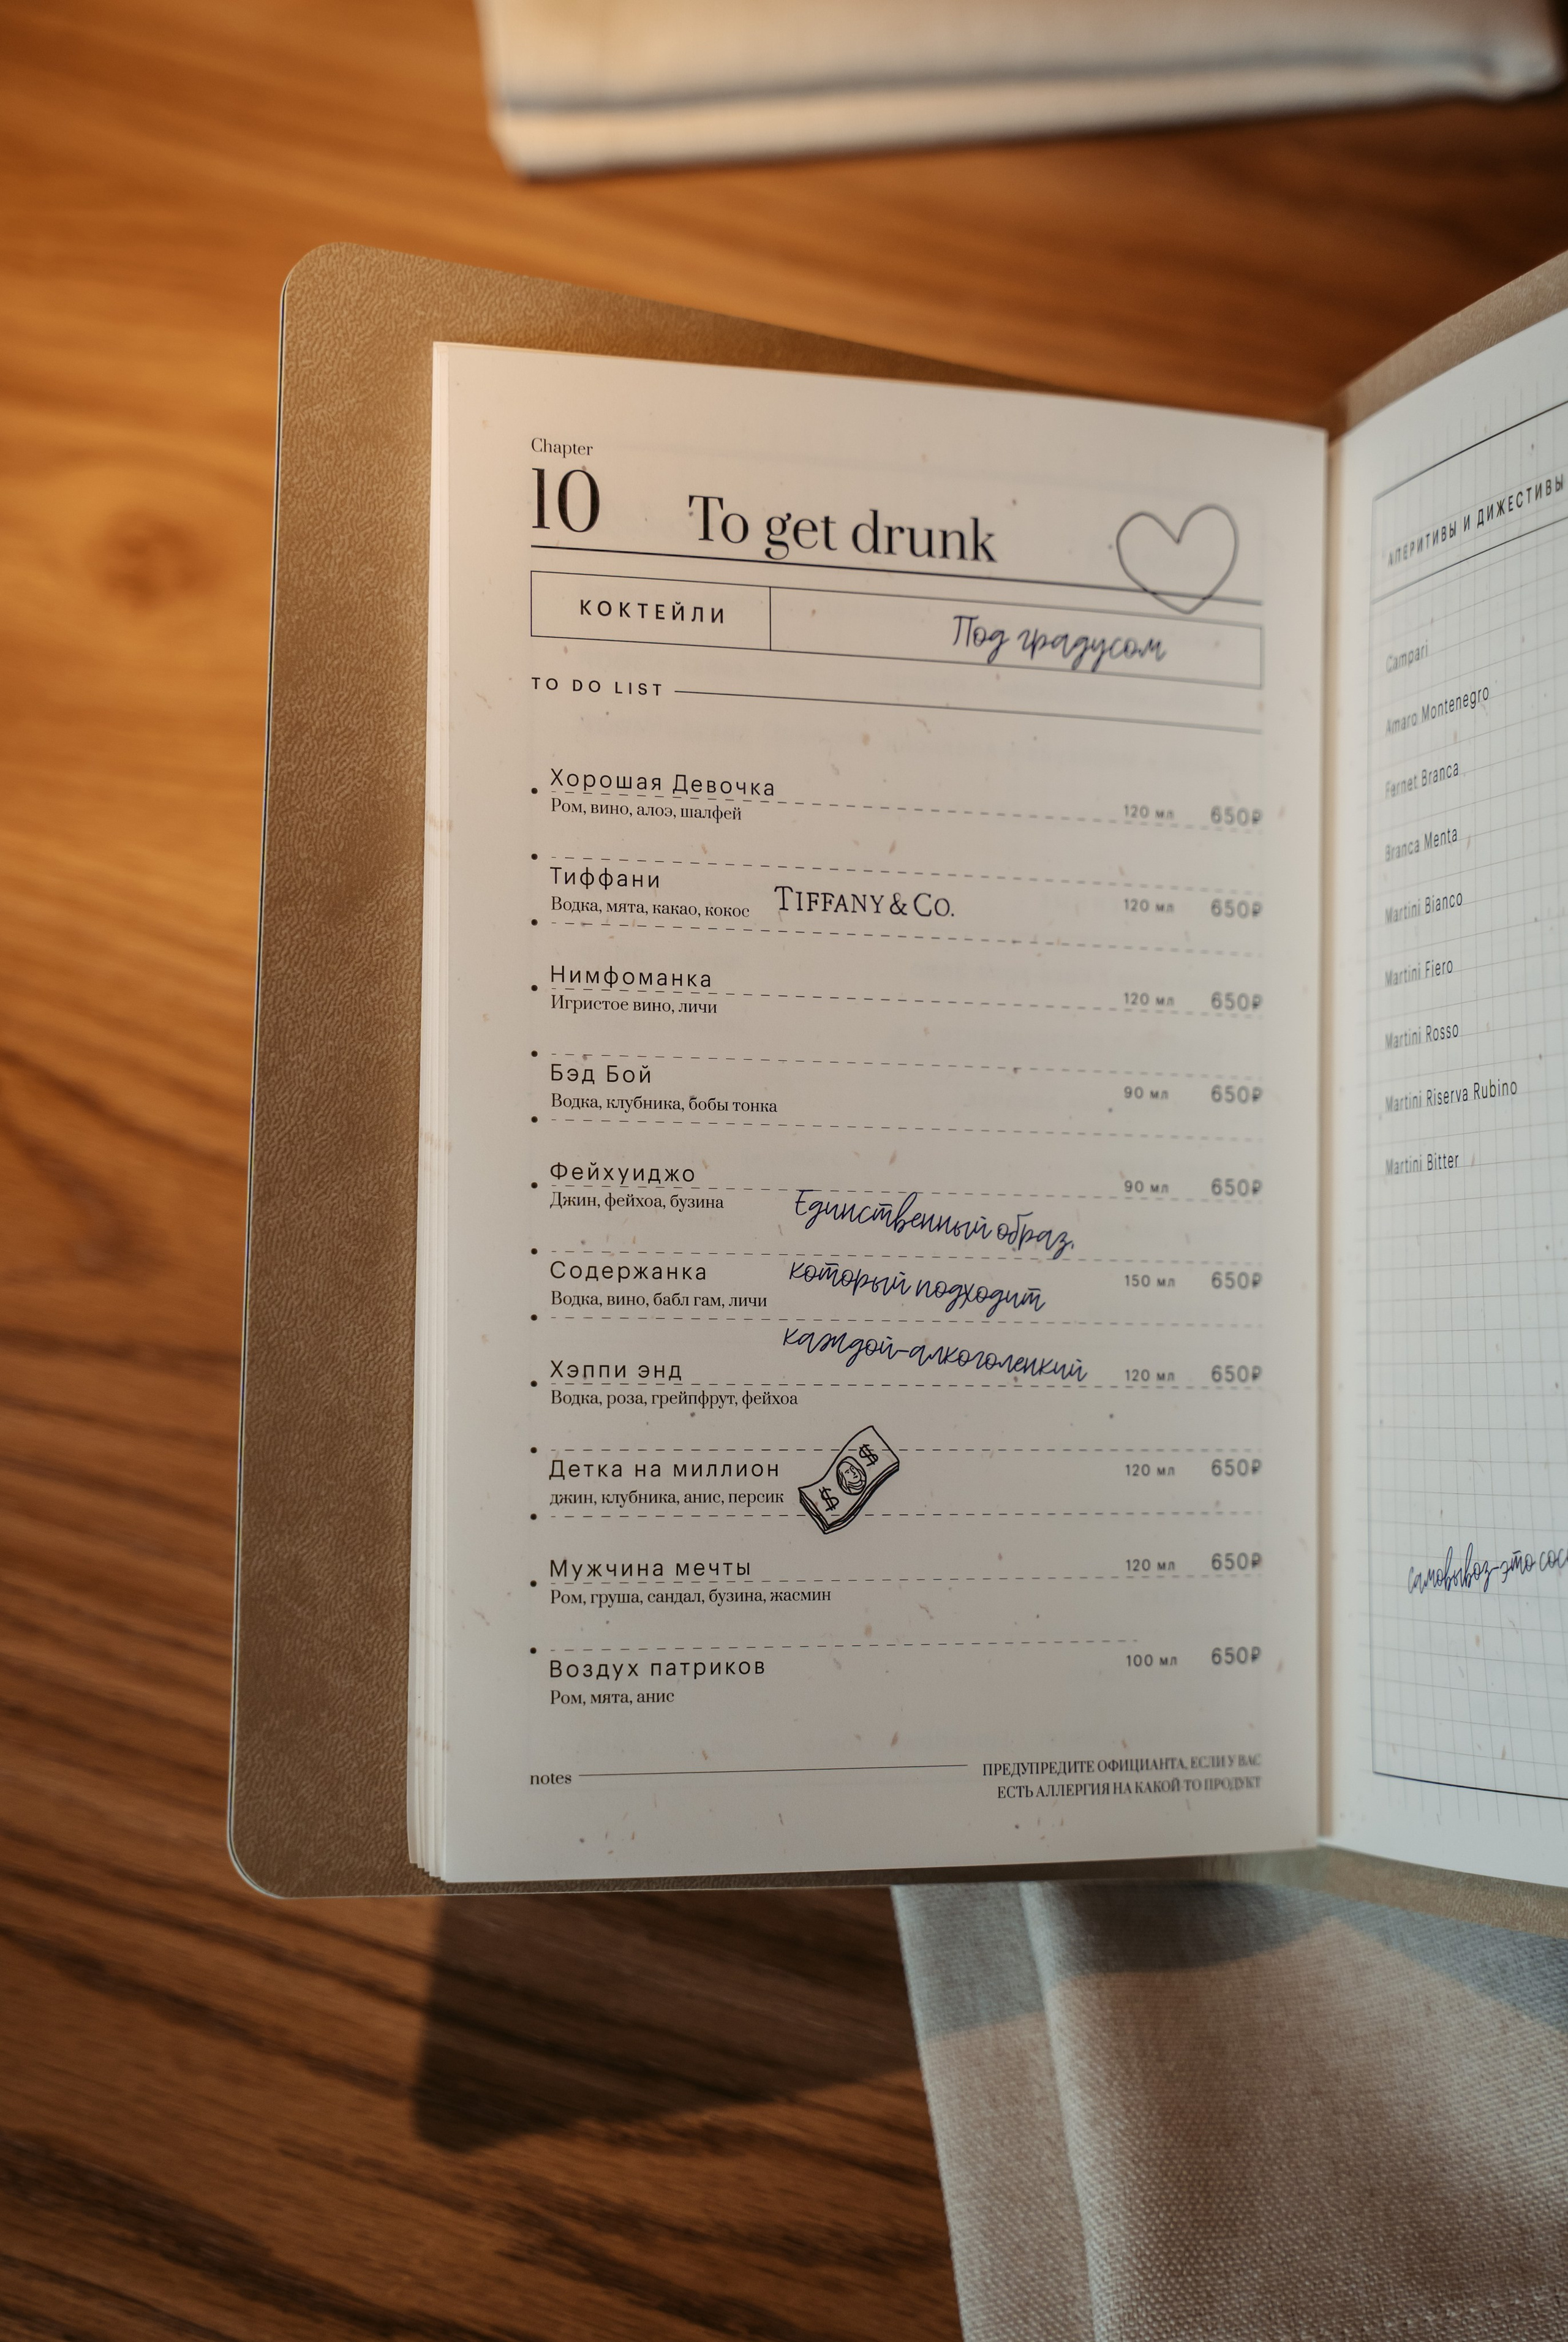 Chapter
10 To get drunk
КОКТЕЙЛИ
Под градусом
TO DO LIST
Хорошая Девочка
Ром, вино, алоэ, шалфей
120 мл 650₽
Тиффани
Водка, мята, какао, кокос
TIFFANY & CO.
120 мл 650₽
Нимфоманка
Игристое вино, личи
120 мл 650₽
Бэд Бой
Водка, клубника, бобы тонка
90 мл 650₽
Фейхуиджо
Джин, фейхоа, бузина
90 мл 650₽
Единственный образ,
который подходит
каждой-алкоголенкий
Содержанка
Водка, вино, бабл гам, личи
150 мл 650₽
Хэппи энд
Водка, роза, грейпфрут, фейхоа
120 мл 650₽
Детка на миллион
джин, клубника, анис, персик
$ $
120 мл 650₽
Мужчина мечты
Ром, груша, сандал, бузина, жасмин
120 мл 650₽
Воздух патриков
Ром, мята, анис
100 мл 650₽
notes
ПРЕДУПРЕДИТЕ ОФИЦИАНТА, ЕСЛИ У ВАС
ЕСТЬ АЛЛЕРГИЯ НА КАКОЙ-ТО ПРОДУКТ
АПЕРИТИВЫ И ДИЖЕСТИВЫ
Campari
Amaro Montenegro
Fernet Branca
Branca Menta
Martini Bianco
Martini Fiero
Martini Rosso
Martini Riserva Rubino
Martini Bitter
самовывоз-это